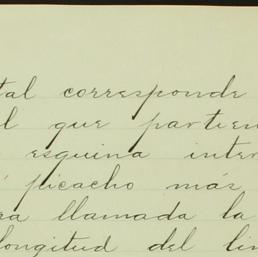 tal corresponde
l que partien
esquina inter
picacho más
ra llamada la
longitud del lin